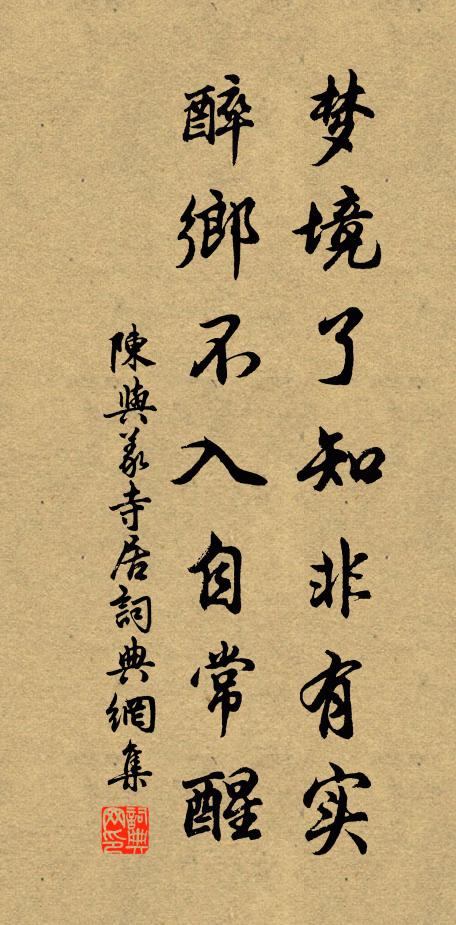 梦境了知非有实
醉鄉不入自常醒
陳與義寺居詞典網集
詞典网印